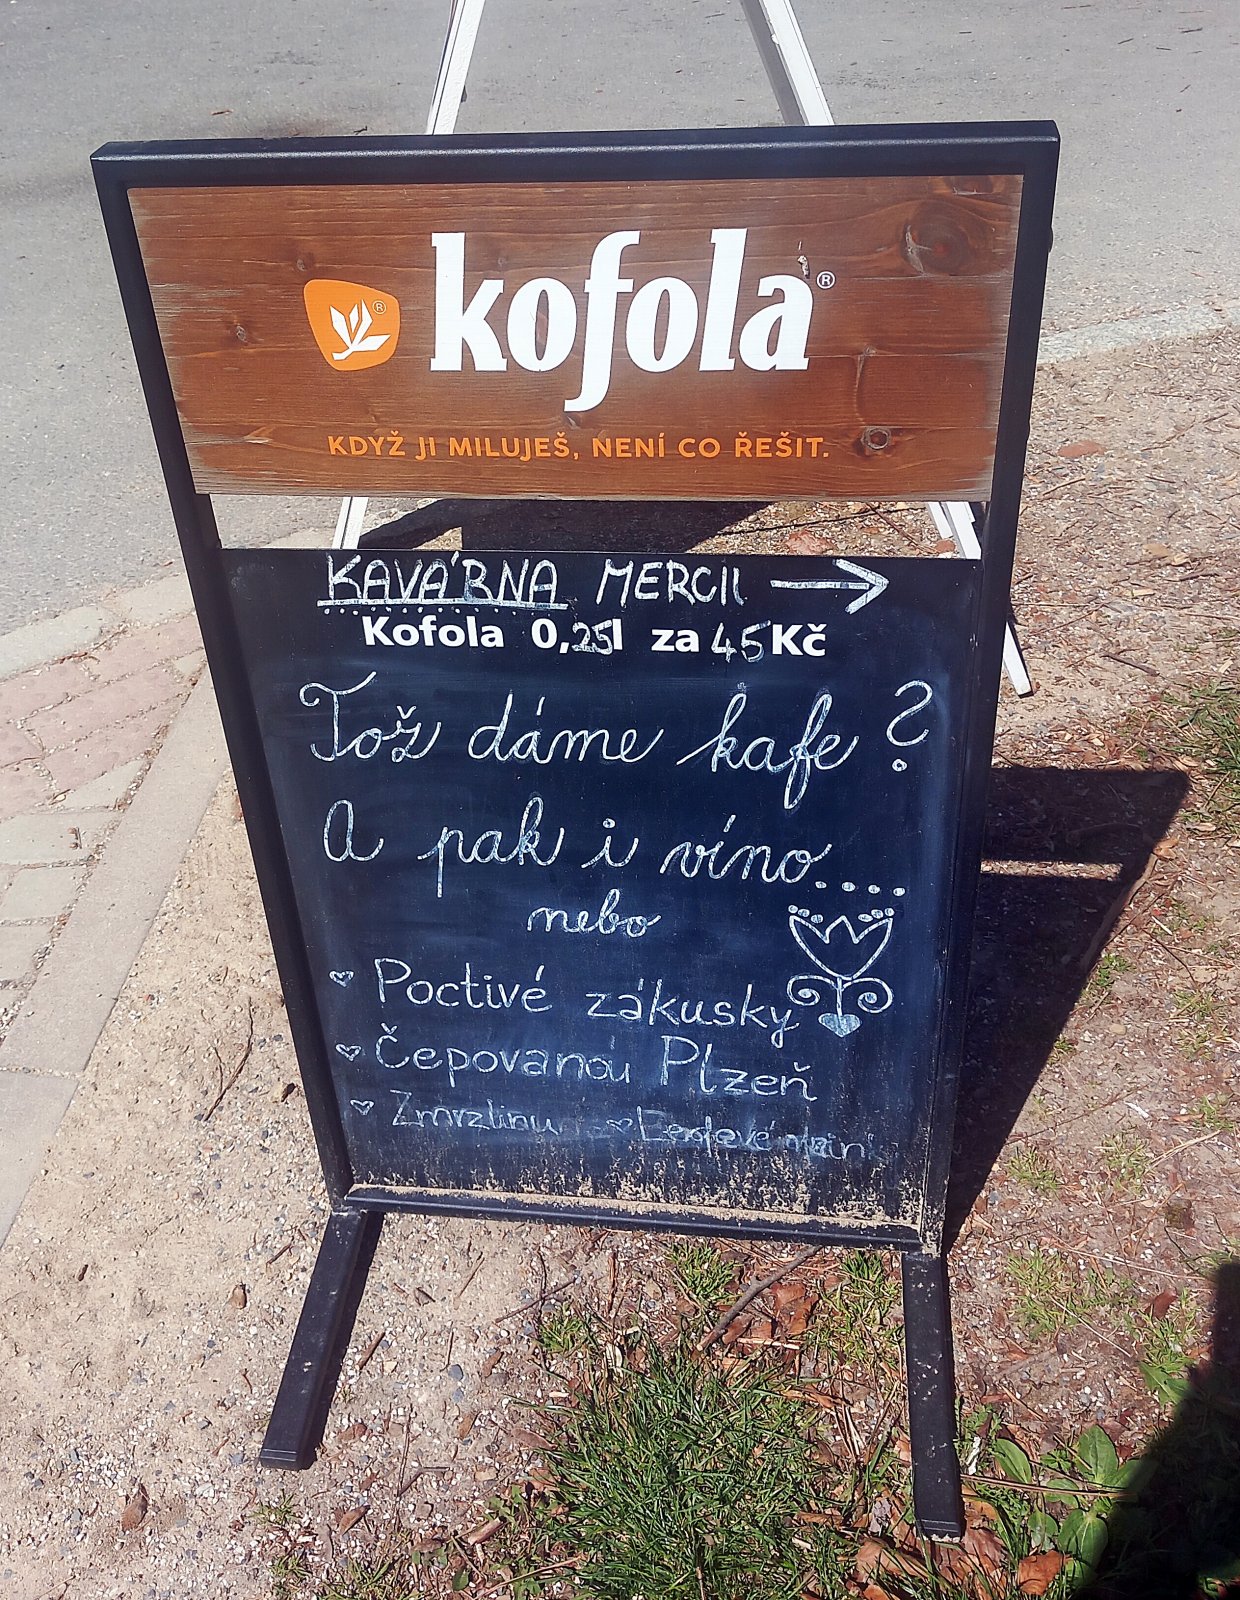 kofola®
KDYŽ JI MILUJEŠ, NENÍ CO ŘEŠIT.
KAVÁRNA MERCII →
Kofola 0,25l za 45 Kč
Tož dáme kafe ?
A pak i víno....
nebo
Poctivé zákusky
Čepovanou Plzeň
Zmrzlinu